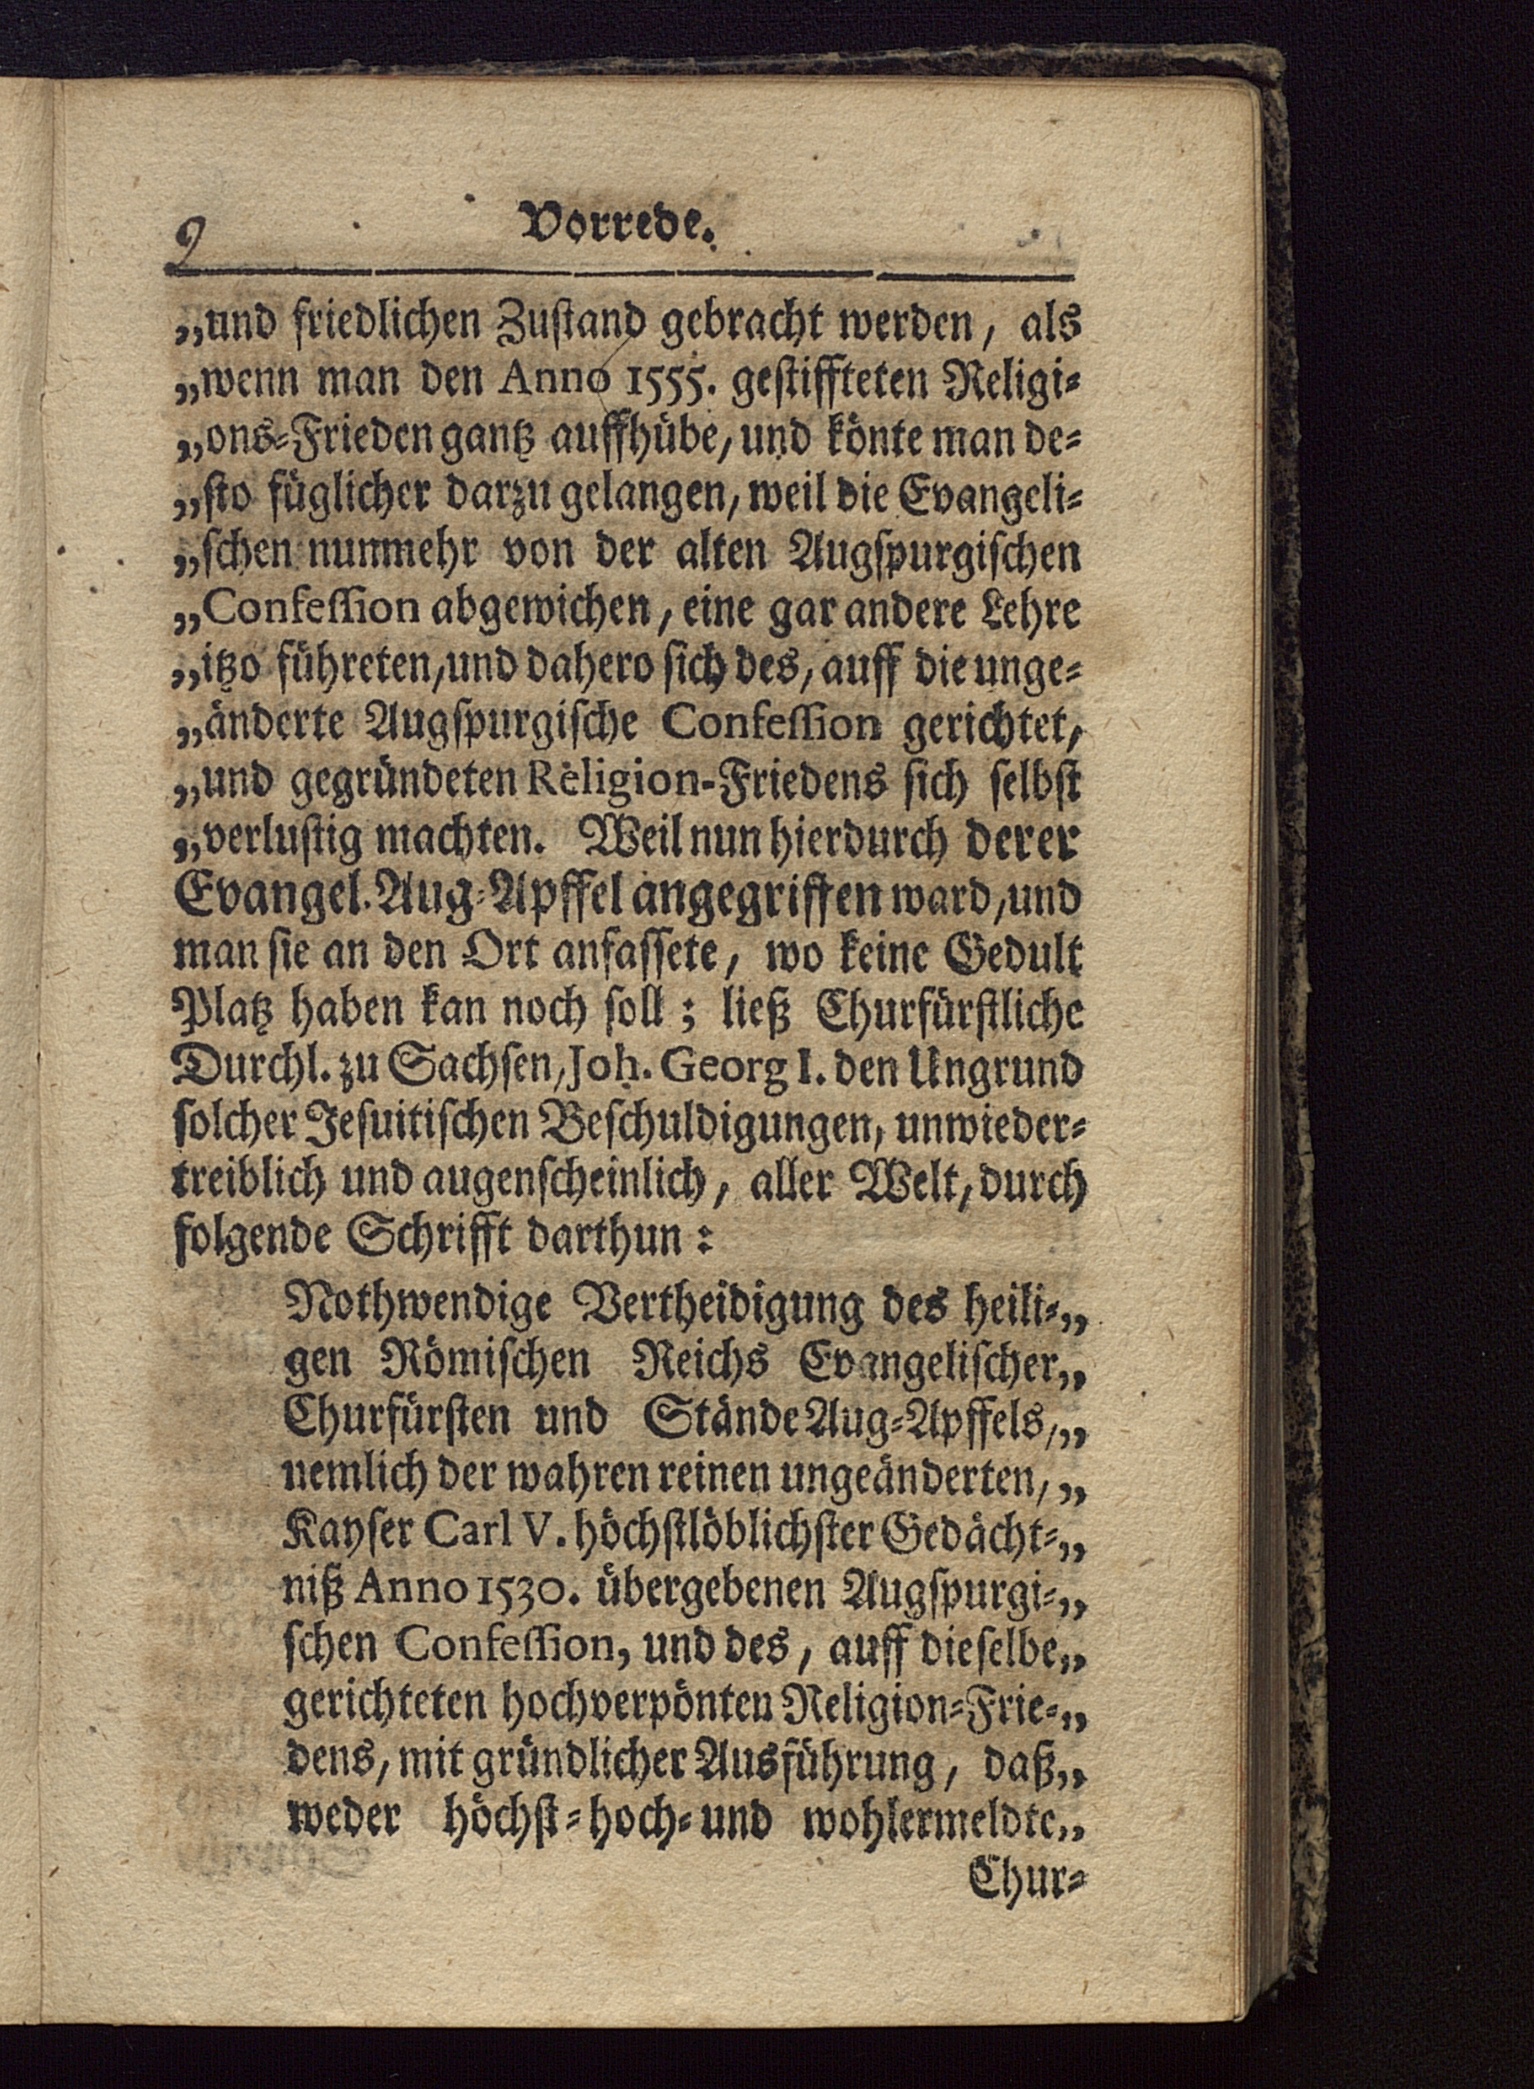 Vorrede.
„und friedlichen Zustand gebracht werden, als
„wenn man den Anno 1555. gestiffteten Religi-
„ons-Frieden gantz auffhübe, und könte man de-
„sto füglicher darzu gelangen, weil die Evangeli-
„schen nunmehr von der alten Augspurgischen
„Confession abgewichen, eine gar andere Lehre
„itzo führeten, und dahero sich des, auff die unge-
„änderte Augspurgische Confession gerichtet,
„und gegründeten Religion-Friedens sich selbst
„verlustig machten. Weil nun hierdurch derer
Evangel. Aug-Apffel angegriffen ward, und
man sie an den Ort anfassete, wo keine Gedult
Platz haben kan noch soll; ließ Churfürstliche
Durchl. zu Sachsen, Joh. Georg I. den Ungrund
solcher Jesuitischen Beschuldigungen, unwieder-
treiblich und augenscheinlich, aller Welt, durch
folgende Schrifft darthun:
Nothwendige Vertheidigung des heili-„
gen Römischen Reichs Evangelischer„
Churfürsten und Stände Aug-Apffels,„
nemlich der wahren reinen ungeänderten,„
Kayser Carl V. höchstlöblichster Gedächt-„
niß Anno 1530. übergebenen Augspurgi-„
schen Confession, und des, auff dieselbe„
gerichteten hochverpönten Religion-Frie-„
dens, mit gründlicher Ausführung, daß„
weder höchst-hoch-und wohlermeldte„
Chur-